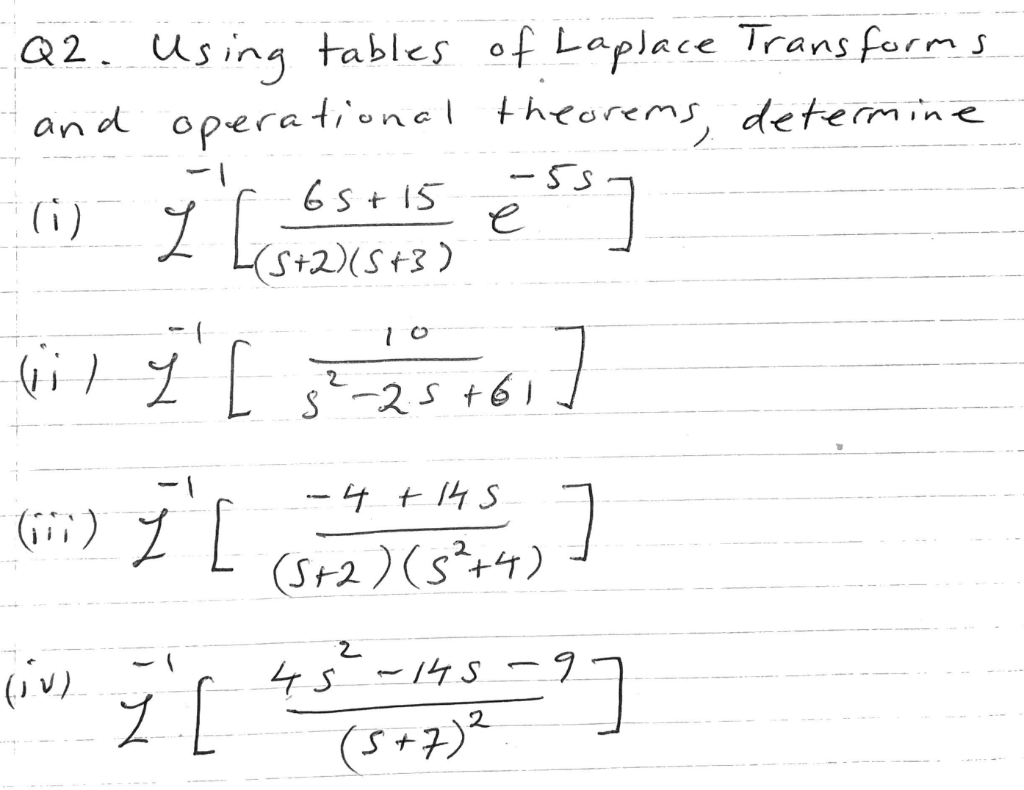 Q2. Using tables of Laplace Transforms
and operational theorems, determine
(i) ℒ⁻¹[ (6s + 15)/((s+2)(s+3)) e^(-5s) ]
(ii) ℒ⁻¹[ 10/(s² - 2s + 61) ]
(iii) ℒ⁻¹[ (-4 + 14s)/((s+2)(s²+4)) ]
(iv) ℒ⁻¹[ (4s² - 14s - 9)/(s+7)² ]